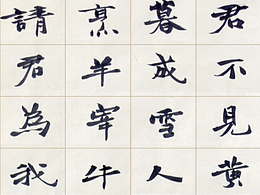 君不見黄
暮成雪人
烹羊宰牛
請君為我